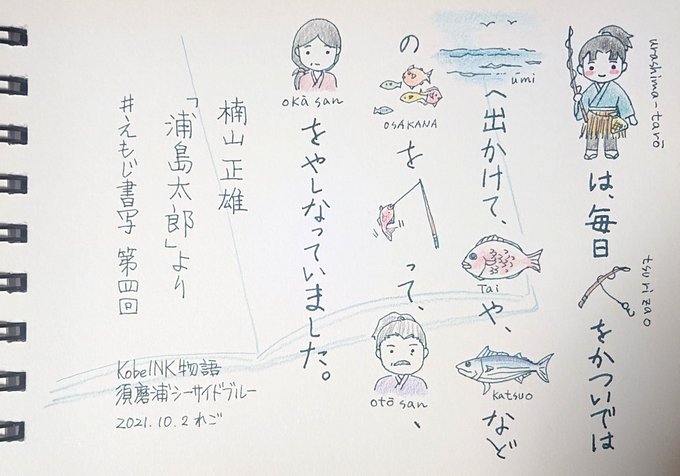 urashima-tarō
は、毎日
tsurizao
をかついでは
umi
へ出かけて、
Tai
や、
katsuo
など
の
OSAKANA
を
って、
otō san
、
okā san
をやしなっていました。
楠山 正雄
「浦島太郎」より
#えもじ書写 第四回
KobeINK物語
須磨浦シーサイドブルー
2021.10.2 れご